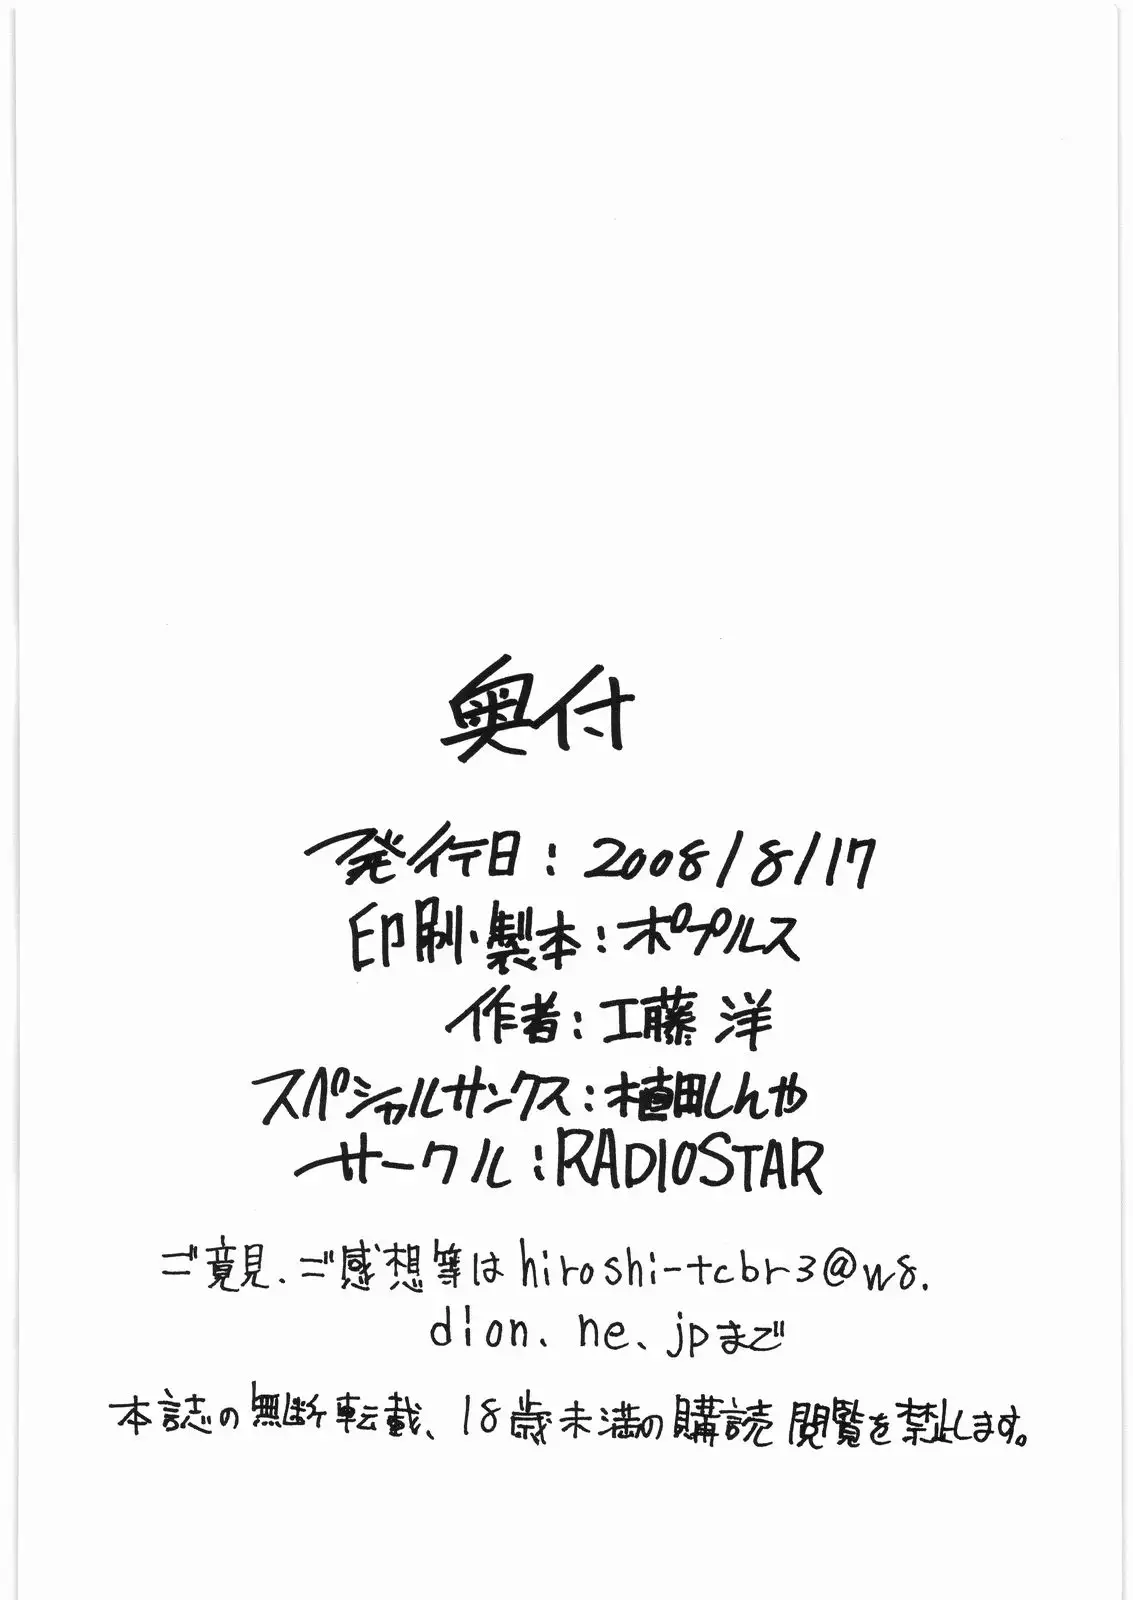 奥付
発行日:2008/8/17
印刷・製本:ポプルス
作者:工藤 洋
スペシャルサンクス:植田しんや
サークル:RADIOSTAR
ご意見、ご感想等はhiroshi-tcbr3@w8.
dion.ne.jpまで
本誌の無断転載、18歳未満の購読閲覧を禁止します。